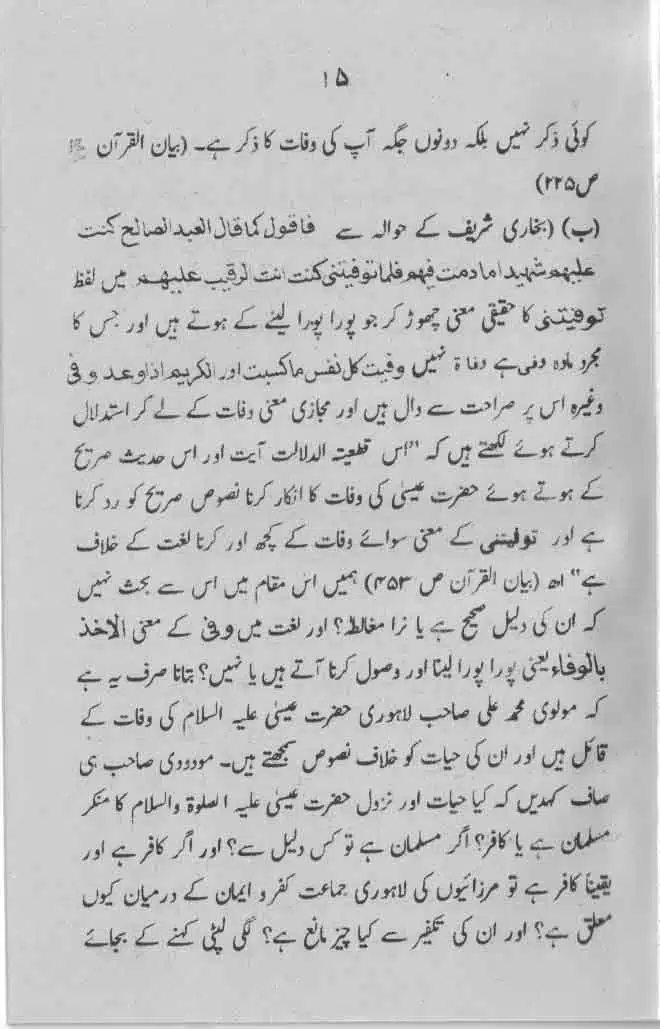 ۱۵
کوئی ذکر نہیں بلکہ دونوں جگہ آپ کی وفات کا ذکر ہے۔ (بیان القرآن
ص۲۲۵)
(ب) (بخاری شریف کے حوالہ سے فاقول کما قال العبد الصالح کنت
علیہم شہیدا مادمت فیہم فلما توفیتنی کنت انت الرقیب علیہم میں لفظ
توفیتنی کا حقیقی معنی چھوڑ کر جو پورا پورا لینے کے ہوتے ہیں اور جس کا
مجرد مادہ وفی ہے وفاۃ نہیں وفیت کل نفس ما کسبت اور الکریم اذا وعد وفی
وغیرہ اس پر صراحت سے دال ہیں اور مجازی معنی وفات کے لے کر استدلال
کرتے ہوئے لکھتے ہیں کہ "اس قطعیتہ الدلالت آیت اور اس حدیث صریح
کے ہوتے ہوئے حضرت عیسیٰ کی وفات کا انکار کرنا نصوص صریح کو رد کرنا
ہے اور توفیتنی کے معنی سوائے وفات کے کچھ اور کرنا لغت کے خلاف
ہے" اھ (بیان القرآن ص ۴۵۳) ہمیں اس مقام میں اس سے بحث نہیں
کہ ان کی دلیل صحیح ہے یا نرا مغالطہ؟ اور لغت میں وفی کے معنی الاخذ
بالوفاء یعنی پورا پورا لینا اور وصول کرنا آتے ہیں یا نہیں؟ بتانا صرف یہ ہے
کہ مولوی محمد علی صاحب لاہوری حضرت عیسیٰ علیہ السلام کی وفات کے
قائل ہیں اور ان کی حیات کو خلاف نصوص سمجھتے ہیں۔ مودودی صاحب ہی
صاف کہدیں کہ کیا حیات اور نزول حضرت عیسیٰ علیہ الصلوۃ والسلام کا منکر
مسلمان ہے یا کافر؟ اگر مسلمان ہے تو کس دلیل سے؟ اور اگر کافر ہے اور
یقیناً کافر ہے تو مرزائیوں کی لاہوری جماعت کفر و ایمان کے درمیان کیوں
معلق ہے؟ اور ان کی تکفیر سے کیا چیز مانع ہے؟ لگی لپٹی کہنے کے بجائے